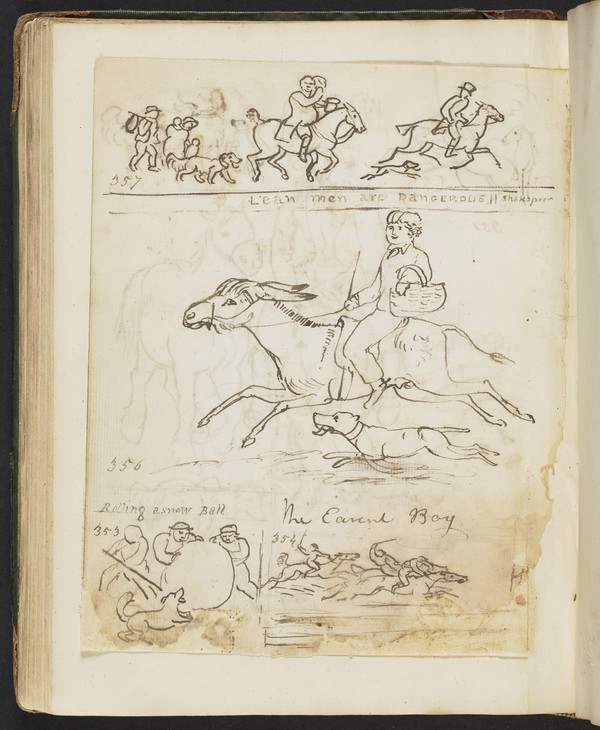 357
Lean men are DANGEROUS!! Shakspeer
356
Rolling a snow Ball
The Earent Boy
353
354